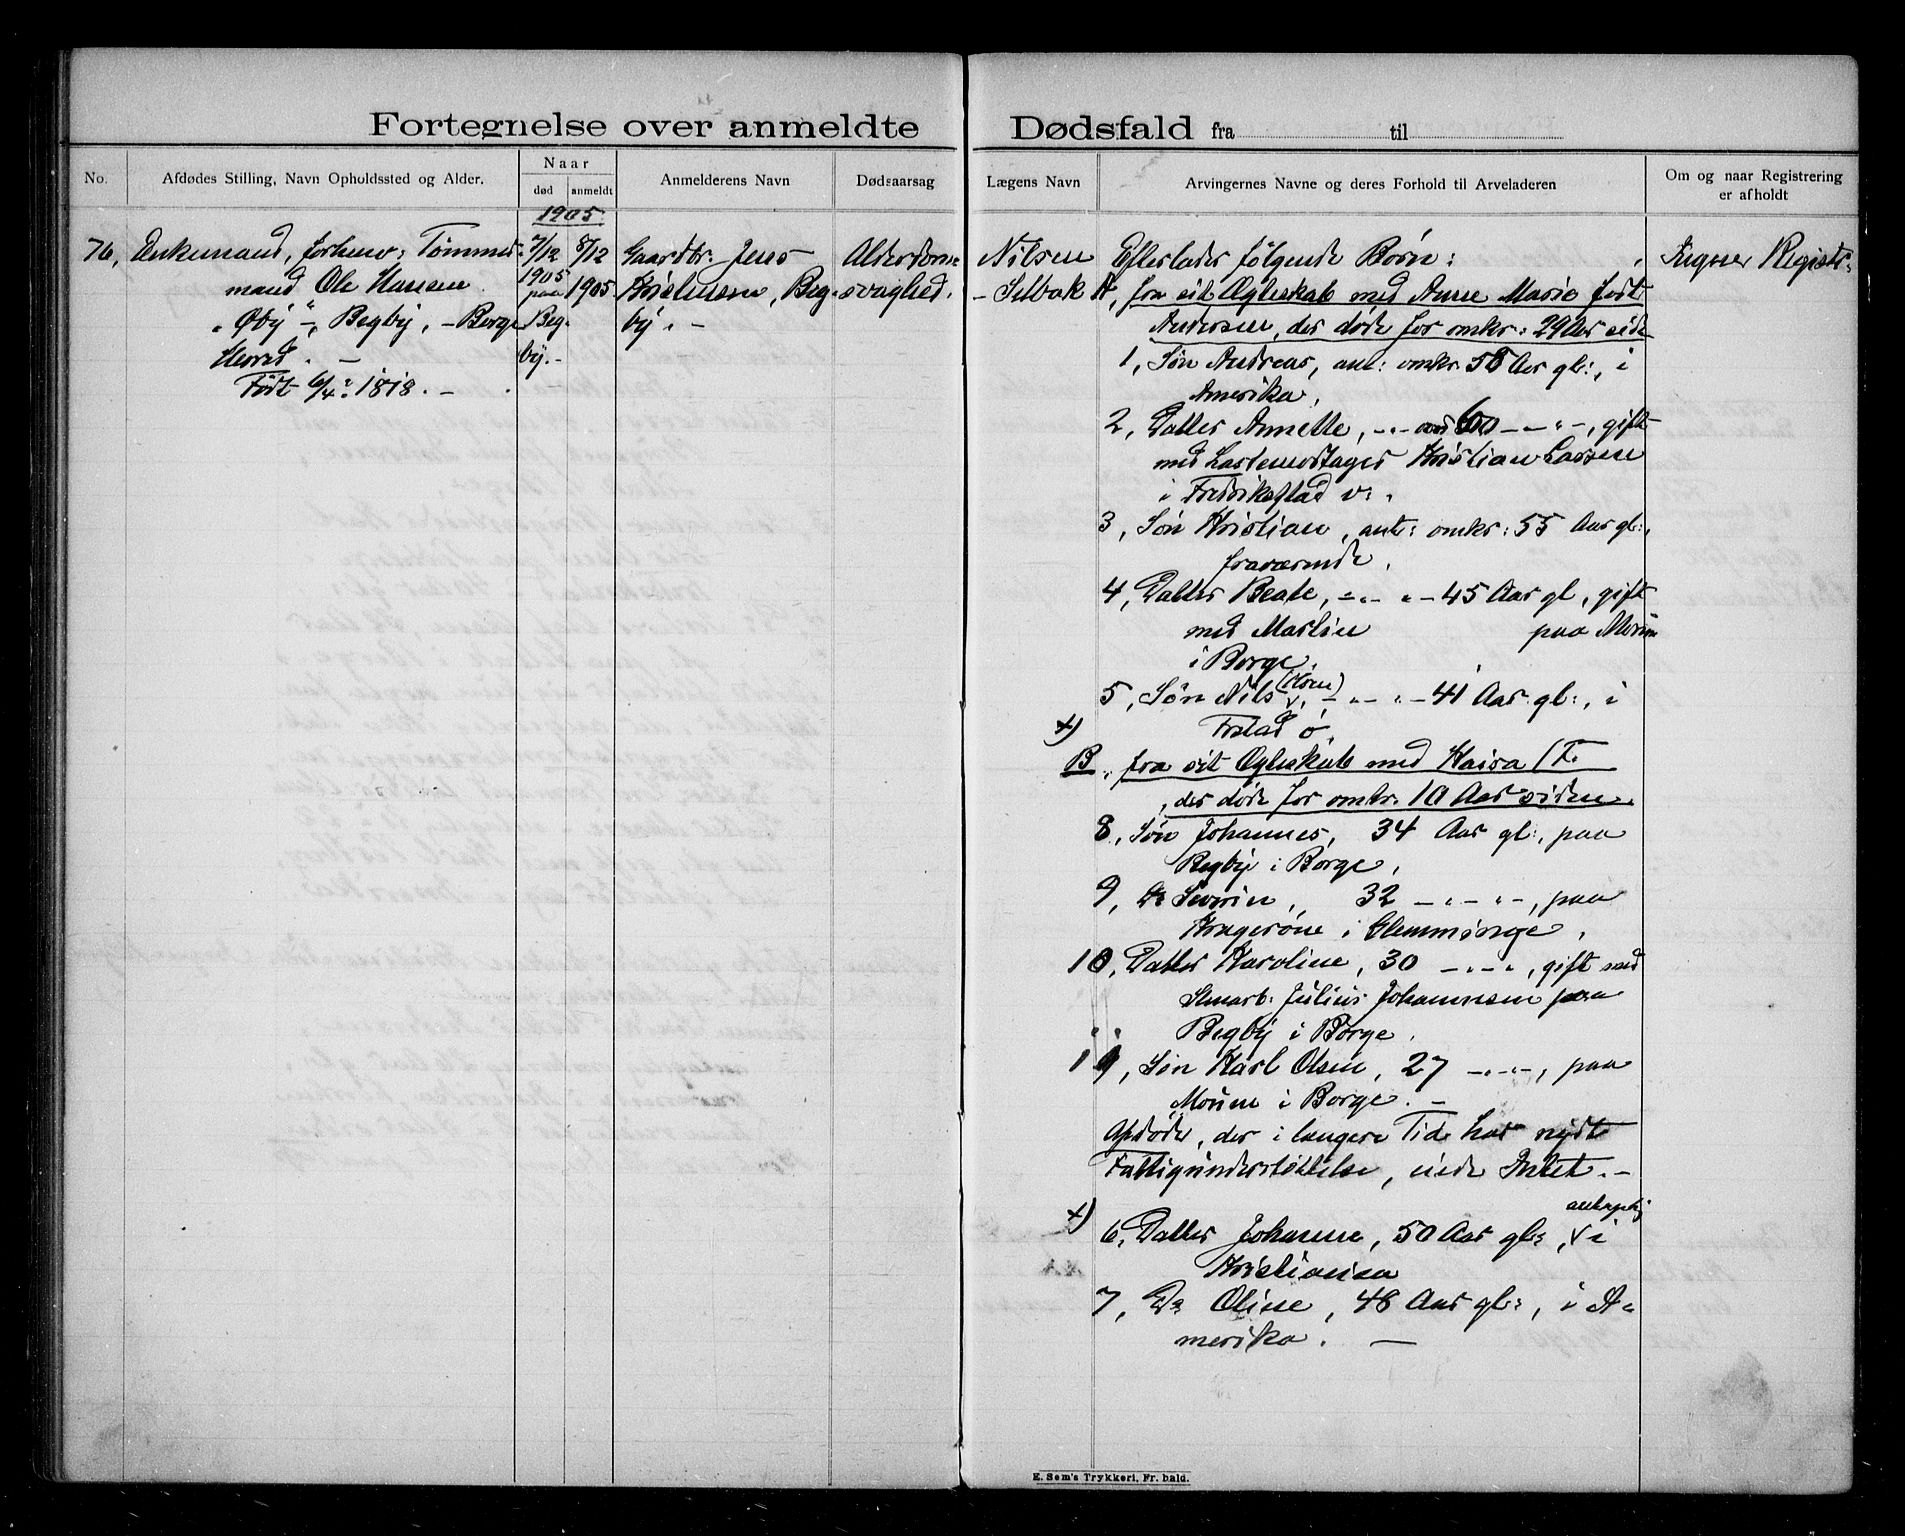 Fortegnelse over anmeldte Dødsfald fra til
No.
Afdødes Stilling, Navn Opholdssted og Alder.
Naar
død anmeldt
Anmelderens Navn
Dødsaarsag
Lægens Navn
Arvingernes Navne og deres Forhold til Arveladeren
Om og naar Registrering
er afholdt
1905
76, Enkemand, forhenv: Tømmer-
mand Ole Hansen
"Øby", Begby, - Borge
Herred. -
Født 6/4: 1818. -
7/12
1905
paa
Beg-
by. -
8/12
1905
Gaardbr. Jens
Kristensen, Beg-
by. -
Alderdoms-
svaghed.
Nilsen
- Selbak
Efterlader følgende Børn:
A, fra sit Ægteskab med Anne Marie født
Andersen, der døde for omkr: 29 Aar siden
1, Søn Andreas, ant: omkr 58 Aar gl:, i
Amerika,
2, Datter Annette, -"- 60 -"- "-, gift
med Lastemodtager Kristian Larsen
i Fredrikstad v:.
3, Søn Kristian, ant: omkr: 55 Aar gl:,
fraværende,
4, Datter Beate, -"- "- 45 Aar gl, gift
med Martin paa Moum
i Borge.
5, Søn Nils, -"- "- 41 Aar gl:, i
Frstad ø,
x)
B, fra sit Ægteskab med Kaisa (F.
, der døde for omkr. 10 Aar siden.
8, Søn Johannes, 34 Aar gl:, paa
Begby i Borge,
9, Do Severin, 32 -"- "-, paa
Kragerøne i Glemminge,
10, Datter Karoline, 30 -"-"-, gift med
Stenarb: Julius Johannesen paa
Begby i Borge.
11, Søn Karl Olsen, 27 -"-"-, paa
Moum i Borge. -
Afdøde, der i længere Tid har nydt
Fattigunderstøttelse, eiede Intet. -
x)
6, Datter Johanne, 50 Aar gl:, i
Kristiania
7, Do Oline, 48 Aar gl:, i A-
merika. -
Ingen Registr:
E. Sem's Trykkeri, Fr. hald.